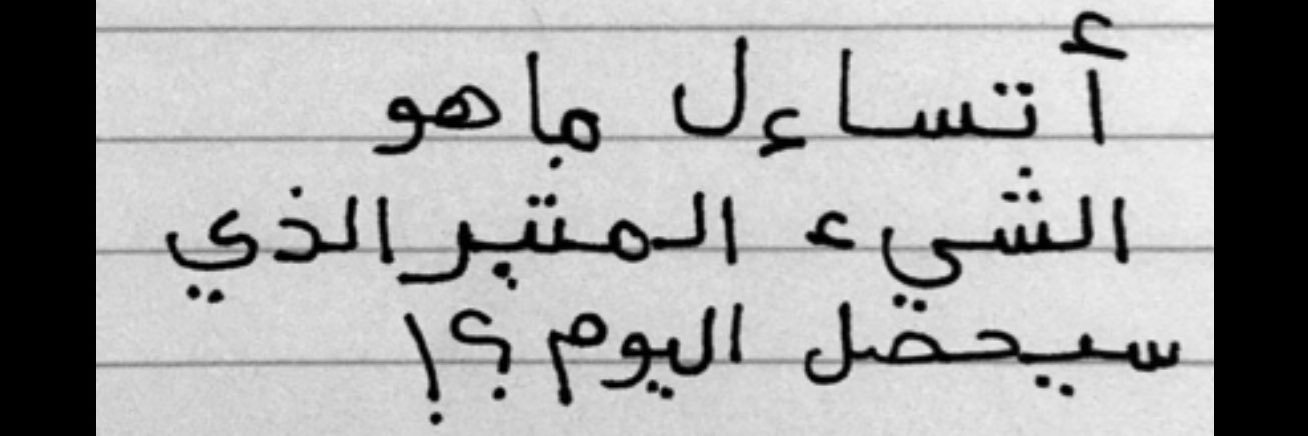 أتساءل ما هو
الشيء المثير الذي
سيحصل اليوم؟!